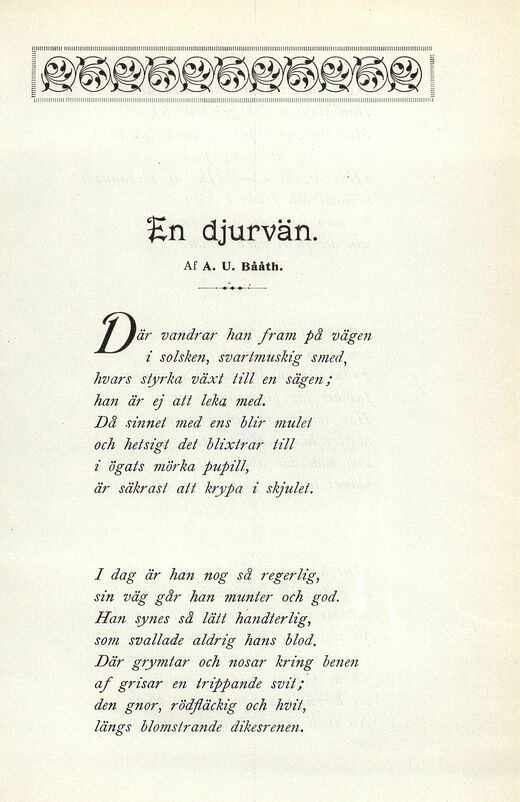 En djurvän.
Af A. U. Bååth.
Där vandrar han fram på vägen
i solsken, svartmuskig smed,
hvars styrka växt till en sägen;
han är ej att leka med.
Då sinnet med ens blir mulet
och hetsigt det blixtrar till
i ögats mörka pupill,
är säkrast att krypa i skjulet.
I dag är han nog så regerlig,
sin väg går han munter och god.
Han synes så lätt handterlig,
som svallade aldrig hans blod.
Där grymtar och nosar kring benen
af grisar en trippande svit;
den gnor, rödfläckig och hvit,
längs blomstrande dikesrenen.